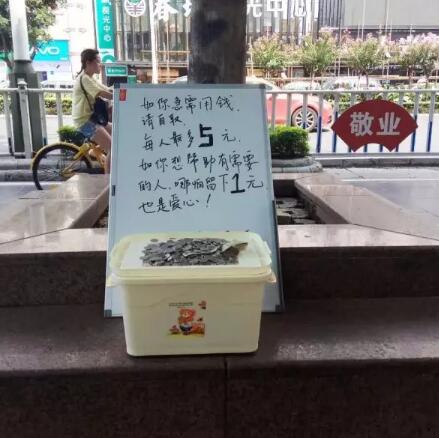 视光中心
视光中心
vivo
如你急需用钱.
请自取.
每人最多5元.
如你想帮助有需要
的人.哪怕留下1元
也是爱心!
敬业